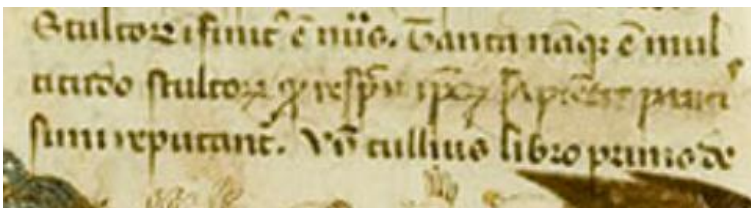 Stultoꝝ ifinit᷒ ē nūs. Tanta nāqꝫ ē mul
titudo stultoꝝ ꝙ respc̄u ip̄oꝝ sapiētes pauci
simi reputant᷒. Vn̄ tullius libro primo de